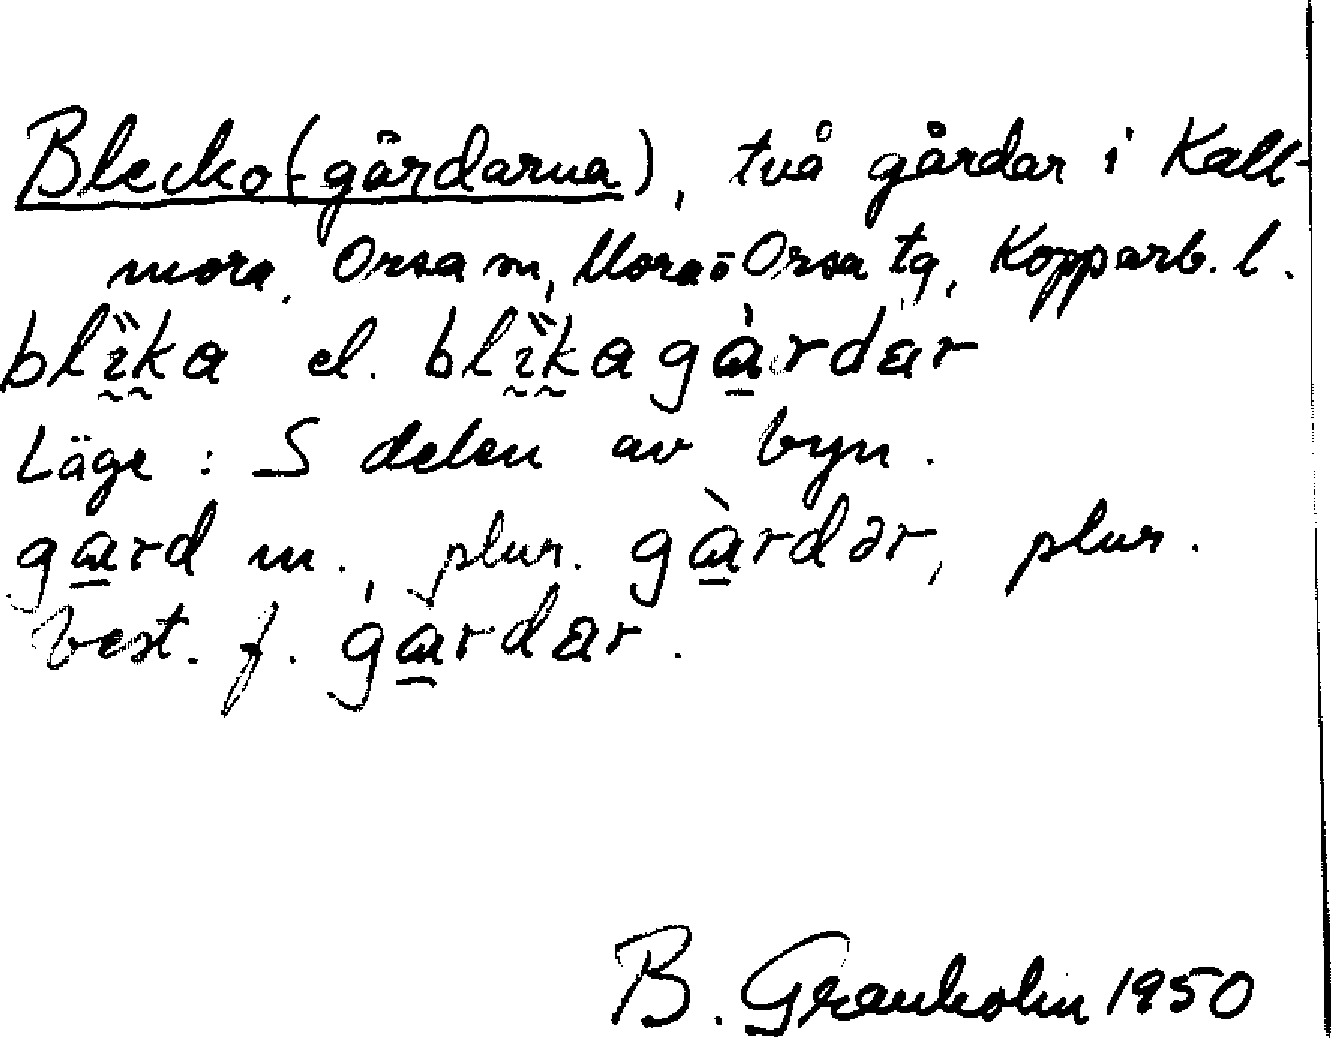 Blecko(-gårdarna), två gårdar i Kall-
mora, Orsa sn, Mora o Orsa tg, Kopparb. l.
blı̏ka el. blı̏kagàrdar
Läge: S delen av byn.
gard m., plur. gàrdər, plur.
best. f. gàrdar.
B. Granholm 1950